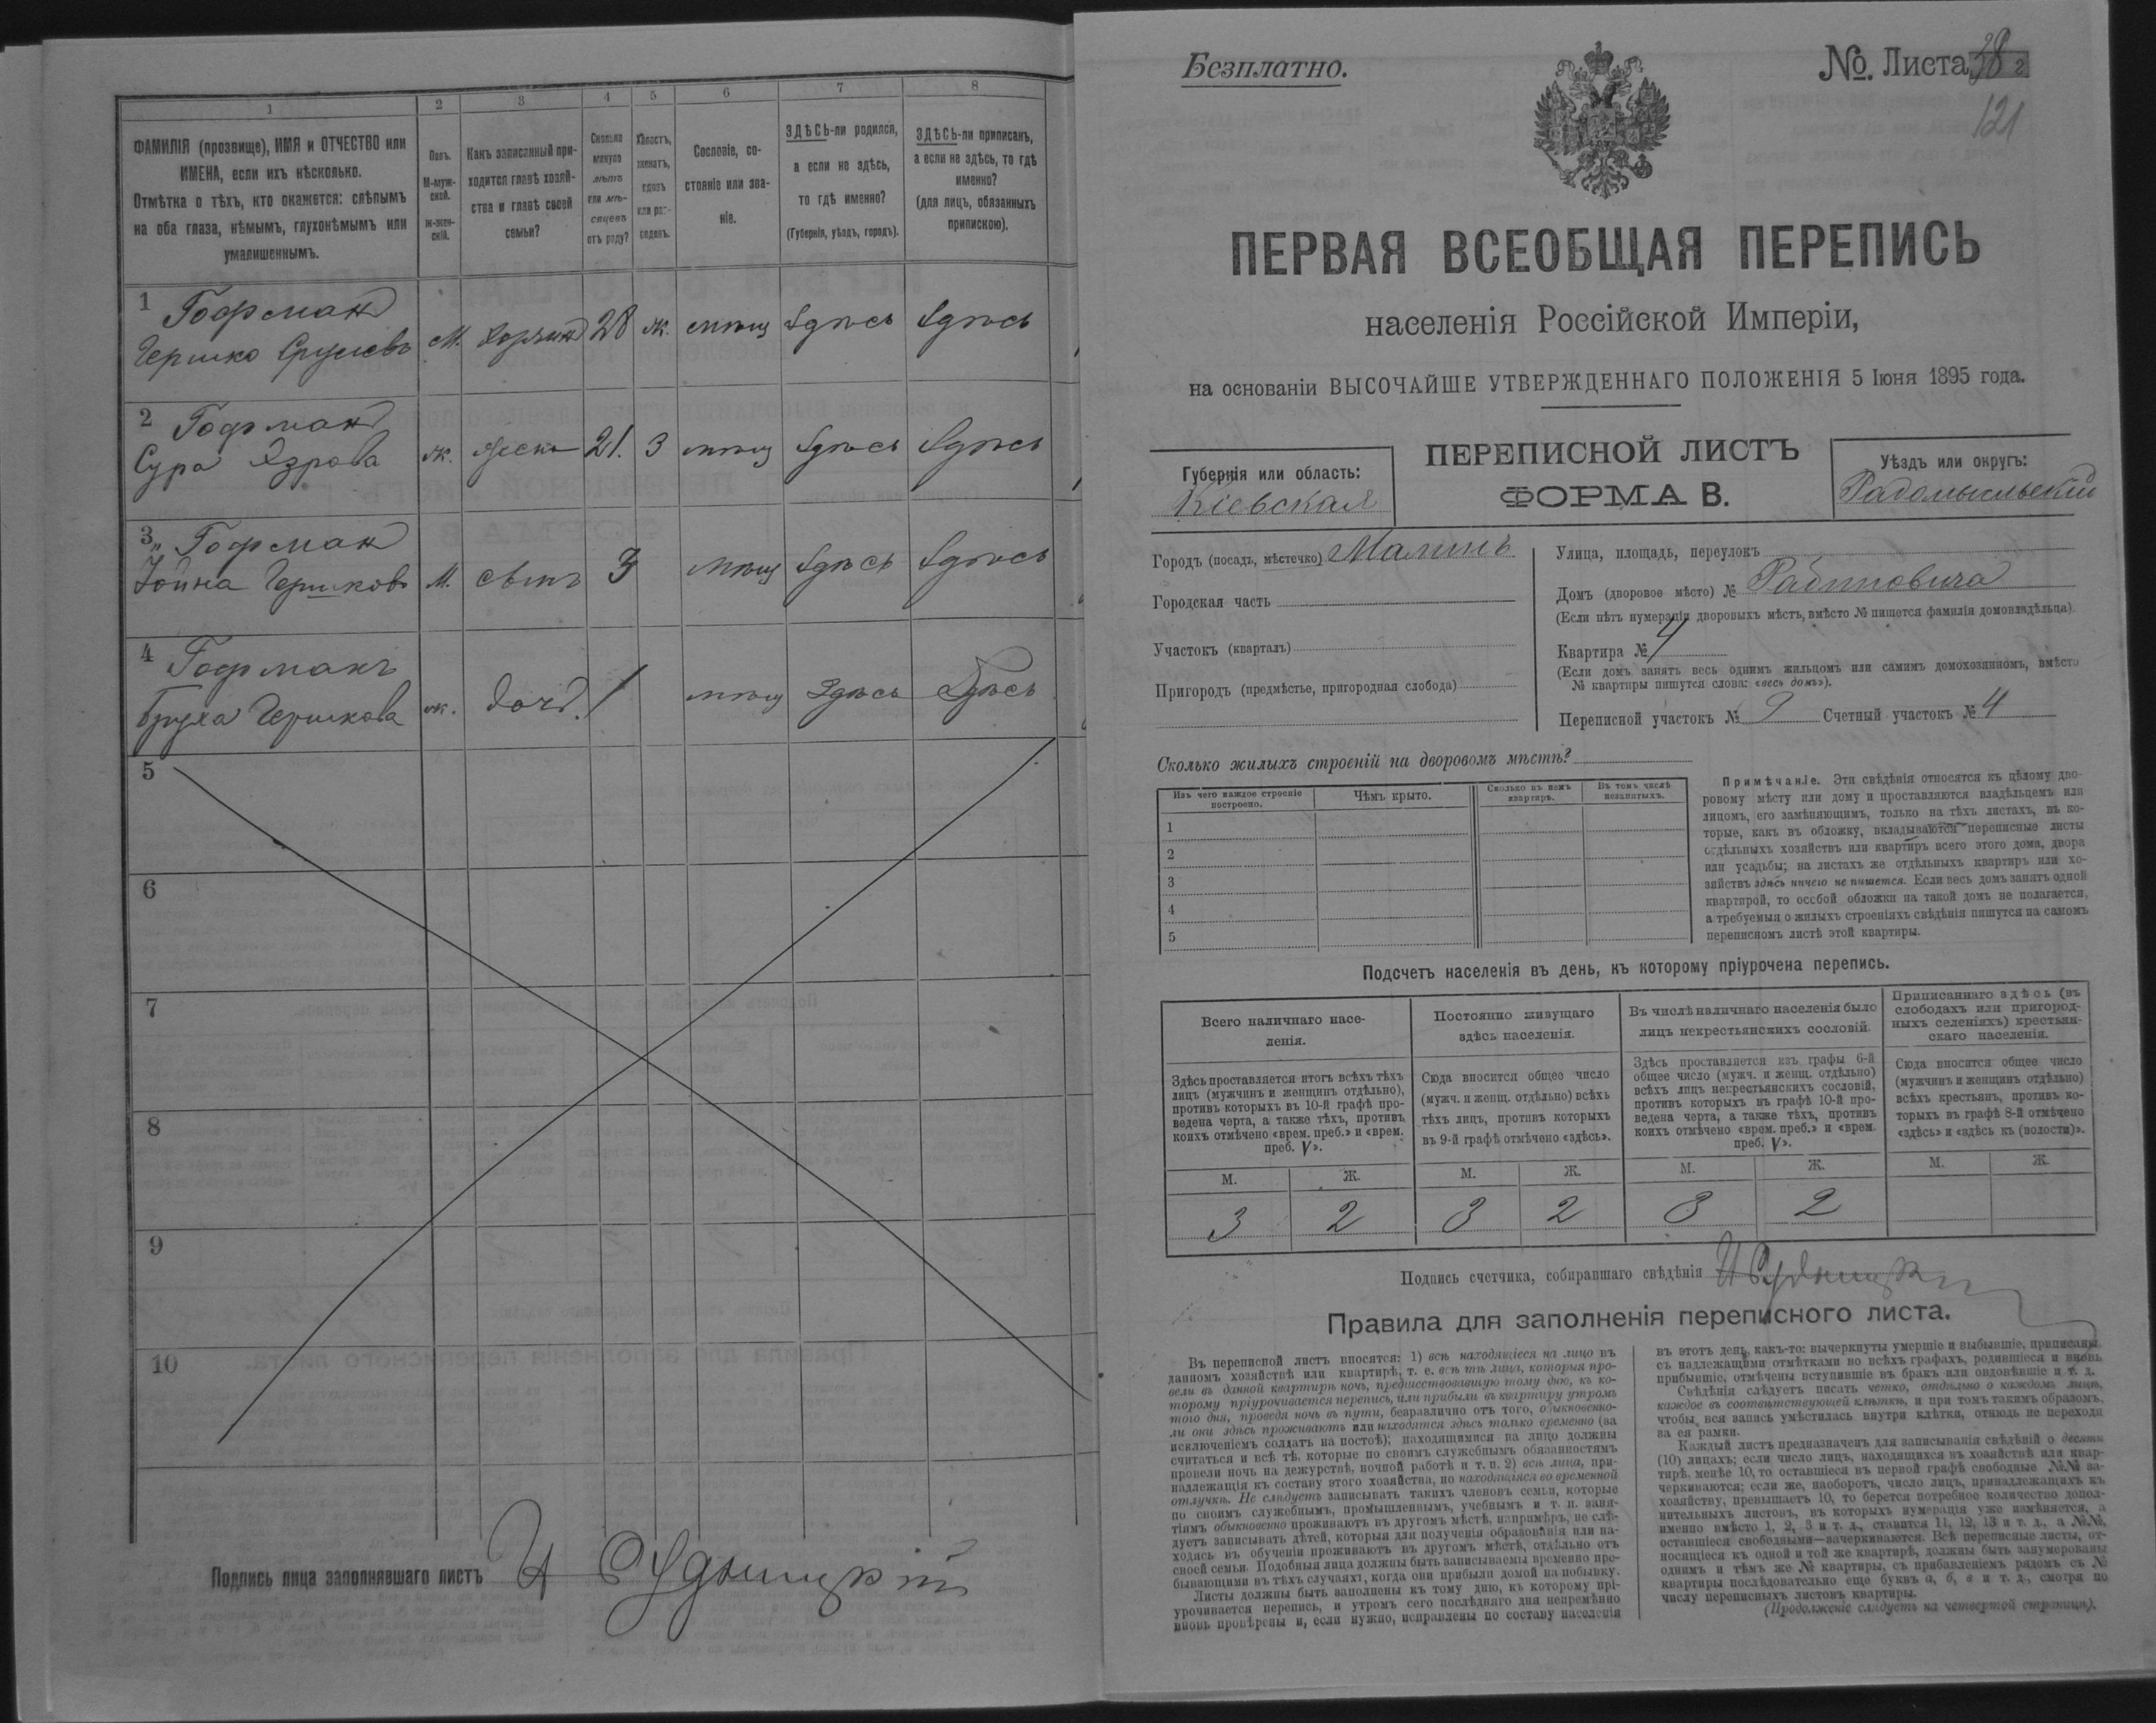 1 2 3 4 5 6 7 8
ФАМИЛІЯ (прозвище), ИМЯ и ОТЧЕСТВО или
ИМЕНА, если ихъ нѣсколько.
Отмѣтка о тѣхъ, кто окажется: слѣпымъ
на оба глаза, нѣмымъ, глухонѣмымъ или
умалишеннымъ.
Полъ.
М-муж-
ской.
ж-жен-
скій.
Какъ записанный при-
ходится главѣ хозяй-
ства и главѣ своей
семьи?
Сколько
минуло
лѣтъ
или мѣ-
сяцевъ
отъ роду?
Холостъ,
женатъ,
вдовъ
или раз-
веденъ.
Сословіе, со-
стояніе или зва-
ніе.
ЗДѢСЬ-ли родился,
а если не здѣсь,
то гдѣ именно?
(Губернія, уѣздъ, городъ).
ЗДѢСЬ-ли приписанъ,
а если не здѣсь, то гдѣ
именно?
(для лицъ, обязанныхъ
припискою).
1 Гофман
Гершко Срулевъ М. 28 ж. мѣщ Здѣсь Здѣсь
2 Гофман
Сура ж. 21. З мѣщ Здѣсь Здѣсь
3 Гофман
Іойна Гершковъ М. сынъ 3 мѣщ Здѣсь Здѣсь
4 Гофманъ
Бруха Гершкова ж. доч. 1 мѣщ Здѣсь Здѣсь
5
6
7
8
9
10
Подпись лица заполнявшаго листъ И Судницкій
Безплатно.
№. Листа 38 2
121
ПЕРВАЯ ВСЕОБЩАЯ ПЕРЕПИСЬ
населенія Россійской Имперіи,
на основаніи ВЫСОЧАЙШЕ УТВЕРЖДЕННАГО ПОЛОЖЕНІЯ 5 Іюня 1895 года.
Губернія или область:
Кіевская
ПЕРЕПИСНОЙ ЛИСТЪ
ФОРМА В.
Уѣздъ или округъ:
Радомысльскій
Городъ (посадъ, мѣстечко) Малинъ
Городская часть
Участокъ (кварталъ)
Пригородъ (предмѣстье, пригородная слобода)
Улица, площадь, переулокъ
Домъ (дворовое мѣсто) № Рабиновича
(Если нѣтъ нумераціи дворовыхъ мѣстъ, вмѣсто № пишется фамилія домовладѣльца).
Квартира № 4
(Если домъ занятъ весь однимъ жильцомъ или самимъ домохозяиномъ, вмѣсто
№ квартиры пишутся слова: «весь домъ»).
Переписной участокъ № 9 Счетный участокъ № 4
Сколько жилыхъ строеній на дворовомъ мѣстѣ?
Изъ чего каждое строеніе
построено.
Чѣмъ крыто.
Сколько въ немъ
квартиръ.
Въ томъ числѣ
незанятыхъ.
1
2
3
4
5
Примѣчаніе. Эти свѣдѣнія относятся къ цѣлому дво-
ровому мѣсту или дому и проставляются владѣльцемъ или
лицомъ, его замѣняющимъ, только на тѣхъ листахъ, въ ко-
торые, какъ въ обложку, вкладываются переписные листы
отдѣльныхъ хозяйствъ или квартиръ всего этого дома, двора
или усадьбы; на листахъ же отдѣльныхъ квартиръ или хо-
зяйствъ здѣсь ничего не пишется. Если весь домъ занятъ одной
квартирой, то особой обложки на такой домъ не полагается,
а требуемыя о жилыхъ строеніяхъ свѣдѣнія пишутся на самомъ
переписномъ листѣ этой квартиры.
Подсчетъ населенія въ день, къ которому пріурочена перепись.
Всего наличнаго насе-
ленія.
Здѣсь проставляется итогъ всѣхъ тѣхъ
лицъ (мужчинъ и женщинъ отдѣльно),
противъ которыхъ въ 10-й графѣ про-
ведена черта, а также тѣхъ, противъ
коихъ отмѣчено «врем. преб.» и «врем.
преб. V».
Постоянно живущаго
здѣсь населенія.
Сюда вносится общее число
(мужч. и женщ. отдѣльно) всѣхъ
тѣхъ лицъ, противъ которыхъ
въ 9-й графѣ отмѣчено «здѣсь».
Въ числѣ наличнаго населенія было
лицъ некрестьянскихъ сословій.
Здѣсь проставляется изъ графы 6-й
общее число (мужч. и женщ. отдѣльно)
всѣхъ лицъ некрестьянскихъ сословій,
противъ которыхъ въ графѣ 10-й про-
ведена черта, а также тѣхъ, противъ
коихъ отмѣчено «врем. преб.» и «врем.
преб. V».
Приписаннаго здѣсь (въ
слободахъ или пригород-
ныхъ селеніяхъ) крестьян-
скаго населенія.
Сюда вносится общее число
(мужчинъ и женщинъ отдѣльно)
всѣхъ крестьянъ, противъ ко-
торыхъ въ графѣ 8-й отмѣчено
«здѣсь» и «здѣсь къ (волости)».
М. Ж. М. Ж. М. Ж. М. Ж.
3 2 3 2 3 2
Подпись счетчика, собиравшаго свѣдѣнія И Судницкій
Правила для заполненія переписного листа.
Въ переписной листъ вносятся: 1) всѣ находящіеся на лицо въ
данномъ хозяйствѣ или квартирѣ, т. е. всѣ тѣ лица, которыя про-
вели въ данной квартирѣ ночь, предшествовавшую тому дню, къ ко-
торому пріурочивается перепись, или прибыли въ квартиру утромъ
того дня, проведя ночь въ пути, безразлично отъ того, обыкновенно-
ли они здѣсь проживаютъ или находятся здѣсь только временно (за
исключеніемъ солдатъ на постоѣ); находящимися на лицо должны
считаться и всѣ тѣ, которые по своимъ служебнымъ обязанностямъ
провели ночь на дежурствѣ, ночной работѣ и т. п. 2) всѣ лица, при-
надлежащія къ составу этого хозяйства, но находящіяся во временной
отлучкѣ. Не слѣдуетъ записывать такихъ членовъ семьи, которые
по своимъ служебнымъ, промышленнымъ, учебнымъ и т. п. заня-
тіямъ обыкновенно проживаютъ въ другомъ мѣстѣ, напримѣръ, не слѣ-
дуетъ записывать дѣтей, которыя для полученія образованія или на-
ходясь въ обученіи проживаютъ въ другомъ мѣстѣ, отдѣльно отъ
своей семьи. Подобныя лица должны быть записываемы временно пре-
бывающими въ тѣхъ случаяхъ, когда они прибыли домой на побывку.
Листы должны быть заполнены къ тому дню, къ которому прі-
урочивается перепись, и утромъ сего послѣдняго дня непремѣнно
вновь провѣрены и, если нужно, исправлены по составу населенія
въ этотъ день, какъ-то: вычеркнуты умершіе и выбывшіе, приписаны
съ надлежащими отмѣтками во всѣхъ графахъ, родившіеся и вновь
прибывшіе, отмѣчены вступившіе въ бракъ или овдовѣвшіе и т. д.
Свѣдѣнія слѣдуетъ писать четко, отдѣльно о каждомъ лицѣ,
каждое въ соотвѣтствующей клѣткѣ, и при томъ такимъ образомъ,
чтобы вся запись умѣстилась внутри клѣтки, отнюдь не переходя
за ея рамки.
Каждый листъ предназначенъ для записыванія свѣдѣній о десяти
(10) лицахъ; если число лицъ, находящихся въ хозяйствѣ или квар-
тирѣ, менѣе 10, то оставшіеся въ первой графѣ свободные №№ за-
черкиваются; если же, наоборотъ, число лицъ, принадлежащихъ къ
хозяйству, превышаетъ 10, то берется потребное количество допол-
нительныхъ листовъ, въ которыхъ нумерація уже измѣняется, а
именно вмѣсто 1, 2, 3 и т. д., ставится 11, 12, 13 и т. д., а №№,
оставшіеся свободными—зачеркиваются. Всѣ переписные листы, от-
носящіеся къ одной и той же квартирѣ, должны быть занумерованы
однимъ и тѣмъ же № квартиры, съ прибавленіемъ рядомъ съ №
квартиры послѣдовательно еще буквъ а, б, в и т. д., смотря по
числу переписныхъ листовъ квартиры.
(Продолженіе слѣдуетъ на четвертой страницѣ).